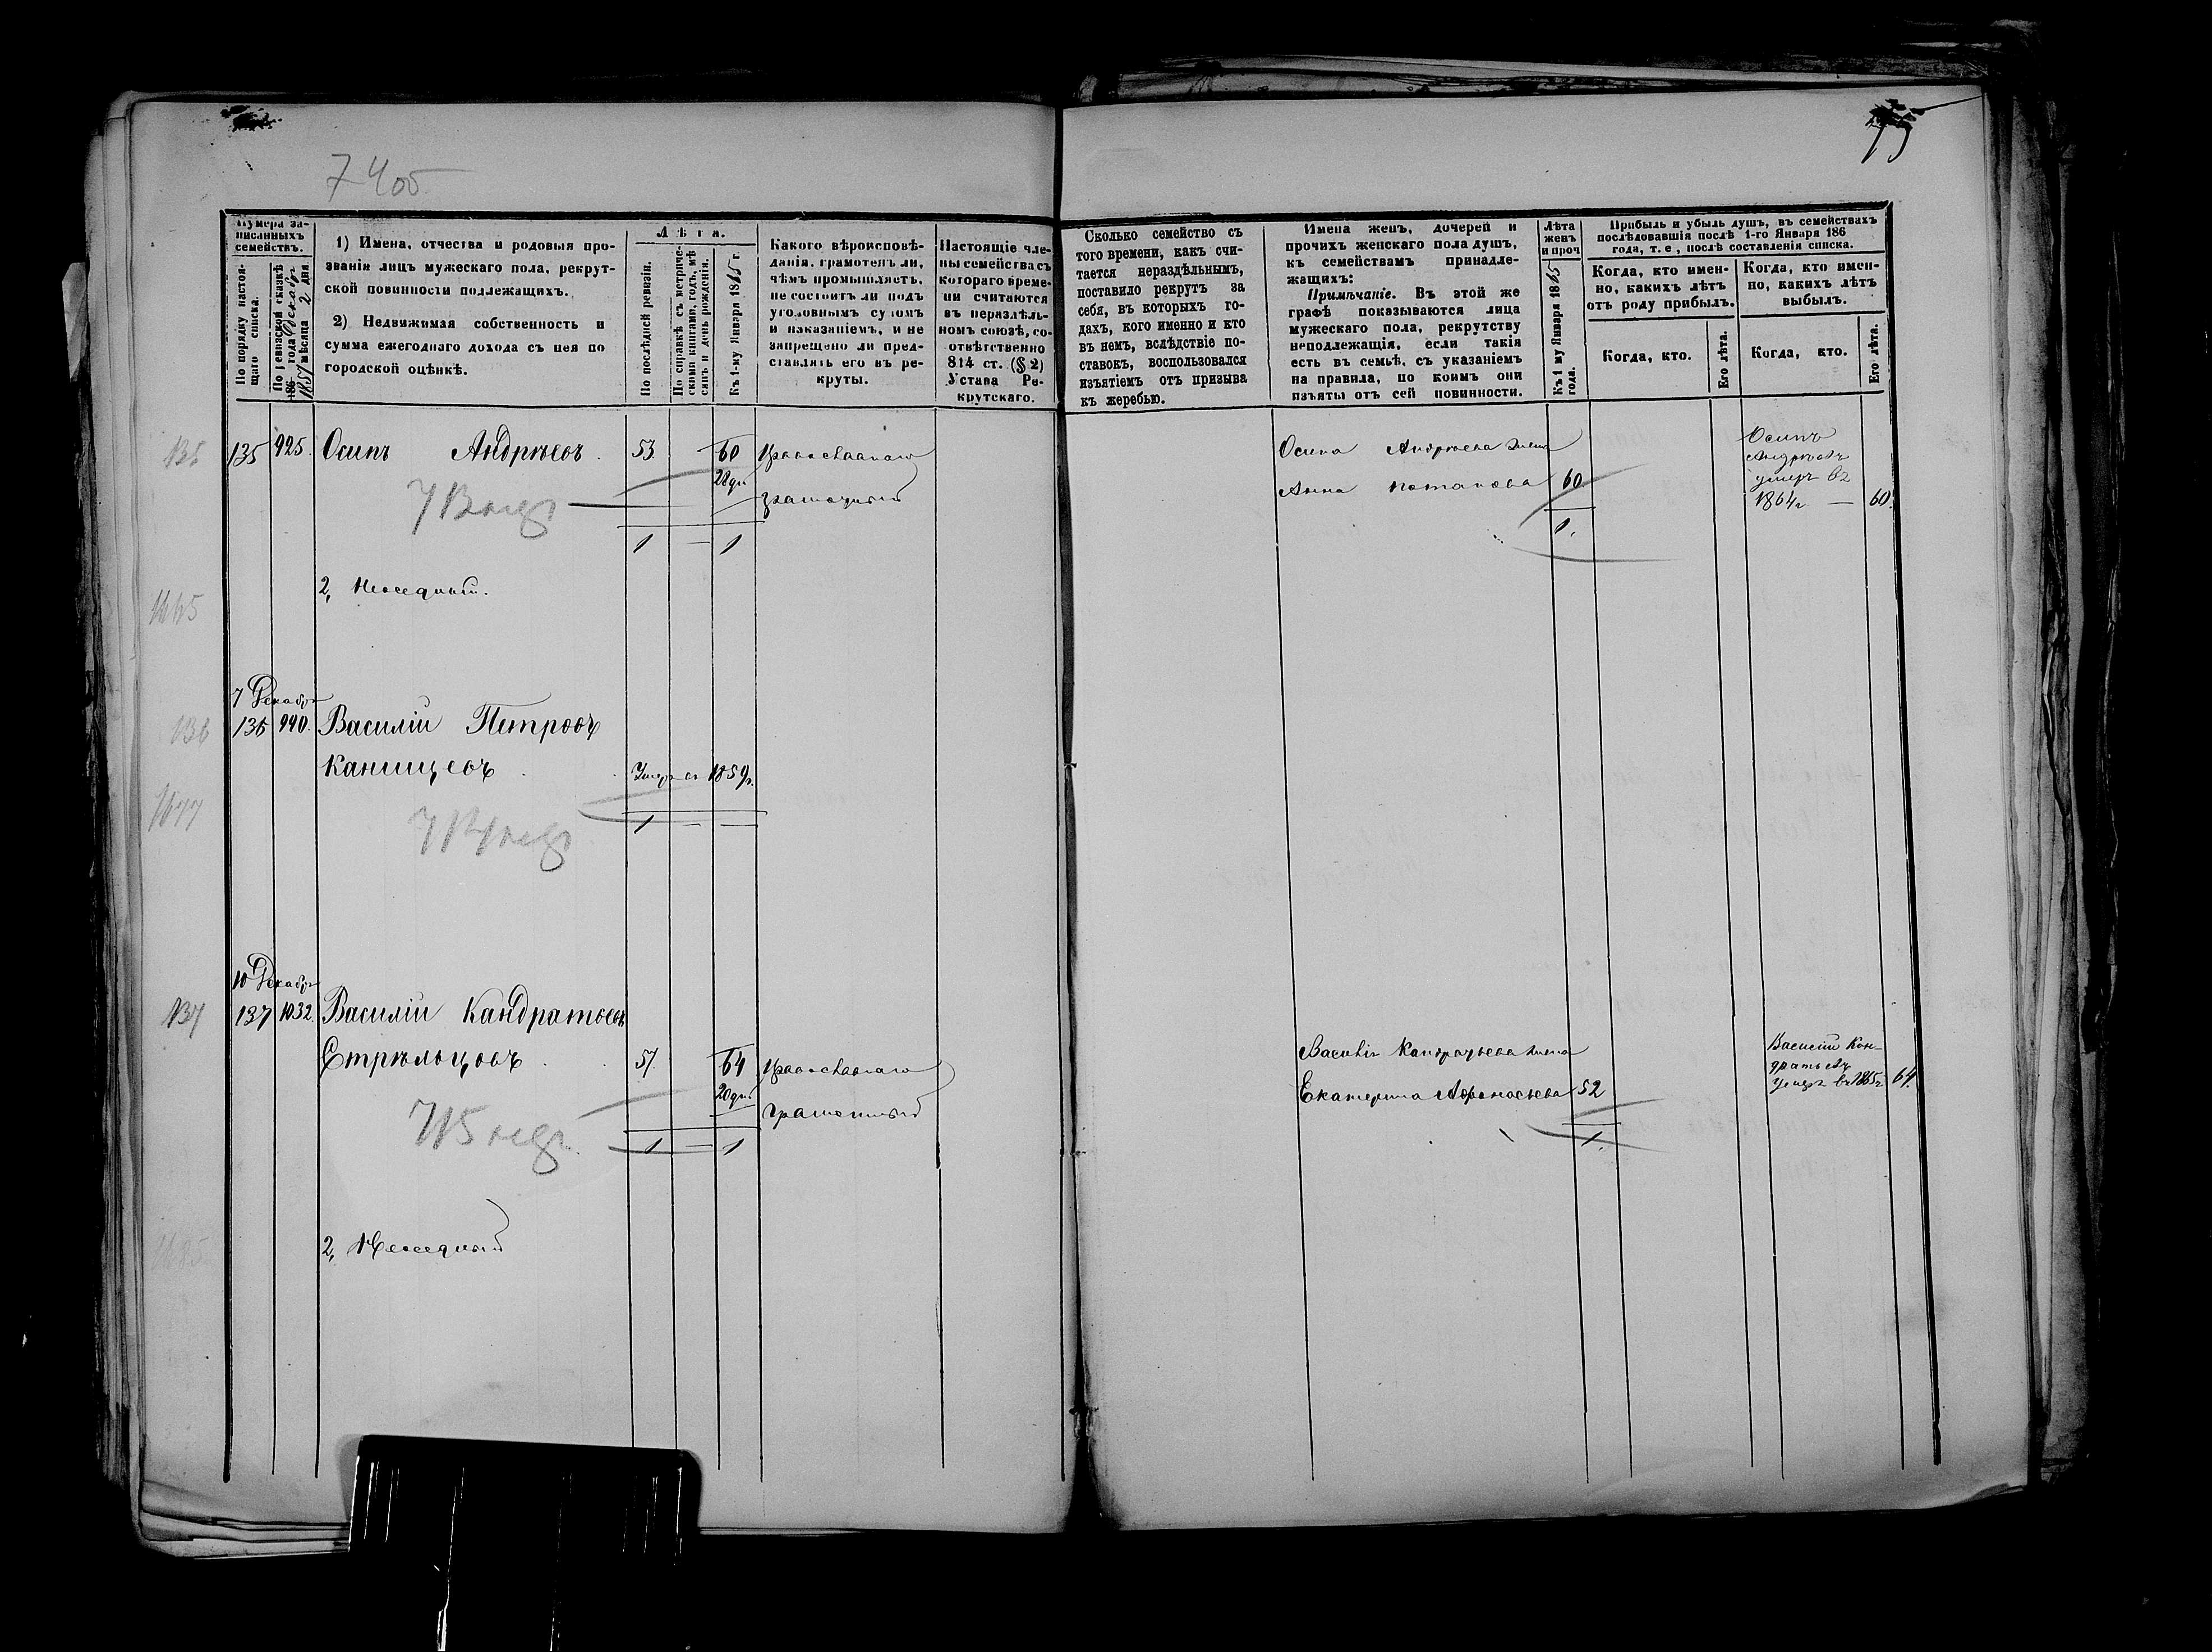 74об
75
Нумера записанныхъ семействъ.
По порядку настоящаго списка.
По ревизской сказкѣ 186 1857 года Декабр мѣсяца 2 дня
1) Имена, отчества и родовыя про-
званія лицъ мужескаго пола, рекрут-
ской повинности подлежащихъ.
2) Недвижимая собственность и
сумма ежегоднаго дохода съ нея по
городской оцѣнкѣ.
Лѣта.
По послѣдней ревизіи.
По справкѣ съ метриче-
скими книгами, годъ, мѣ
сяцъ и день рожденія.
Къ 1-му Января 1865 г.
Какого вѣроисповѣ-
данія, грамотенъ ли,
чѣмъ промышляетъ,
не состоитъ ли подъ
уголовнымъ судомъ
и наказаніемъ, и не
запрещено ли пред-
ставлять его въ ре-
круты.
Настоящіе чле-
ны семейства съ
котораго време-
ни считаются
въ нераздѣль-
номъ союзѣ, со-
отвѣтственно
814 ст. (§ 2)
Устава Ре-
крутскаго.
Сколько семейство съ
того времени, какъ счи-
тается нераздѣльнымъ,
поставило рекрутъ за
себя, въ которыхъ го-
дахъ, кого именно и кто
въ немъ, вслѣдствіе по-
ставокъ, воспользовался
изъятіемъ отъ призыва
къ жеребью.
Имена женъ, дочерей и
прочихъ женскаго пола душъ,
къ семействамъ принадле-
жащихъ:
Примѣчаніе. Въ этой же
графѣ показываются лица
мужескаго пола, рекрутству
неподлежащія, если такія
есть въ семьѣ, съ указаніемъ
на правила, по коимъ они
изъяты отъ сей повинности.
Лѣта
женъ
и проч
Къ 1 му Января 1865
года.
Прибыль и убыль душъ, въ семействахъ
послѣдовавшія послѣ 1-го Января 186
года, т. е., послѣ составленія списка.
Когда, кто имен-
но, какихъ лѣтъ
отъ роду прибылъ.
Когда, кто имен-
но, какихъ лѣтъ
выбылъ.
Когда, кто.
Его лѣта.
Когда, кто.
Его лѣта.
135 135 925. Осипъ Андрѣевъ. 53. 60 Православнаго
28 дн
грамотный
1 — 1
Осипа Андрѣева жена
Анна Потапова 60
1.
Осипъ
Андрѣевъ
умеръ въ
1864г — 60.
2, Неоседный.
1665
7 Декабр
136 136 940. Василій Петровъ
Канищевъ Умеръ въ 1859г.
1 — —
1677
10 Декабр
137 137 1032. Василій Кандратьевъ
Стрѣльцовъ 57. 64 Православнаго
20 дн
Грамотный
715
1 — 1
Василія Кандратьева жена
Екатерина Афонасьева 52
1.
Василій Кон-
дратьевъ
умеръ въ 1865г 64.
2, Неоседный
1685